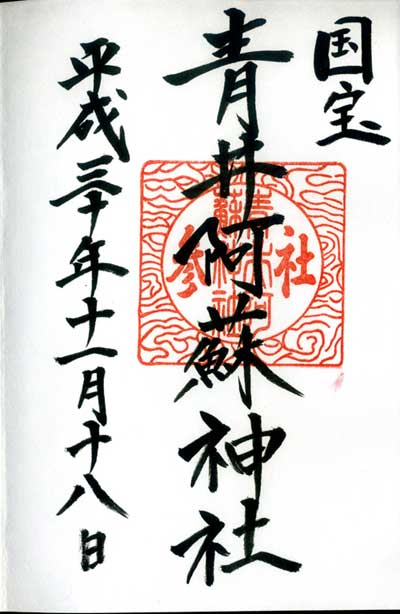 国宝
青井阿蘇神社
参社
平成三十年十一月十八日